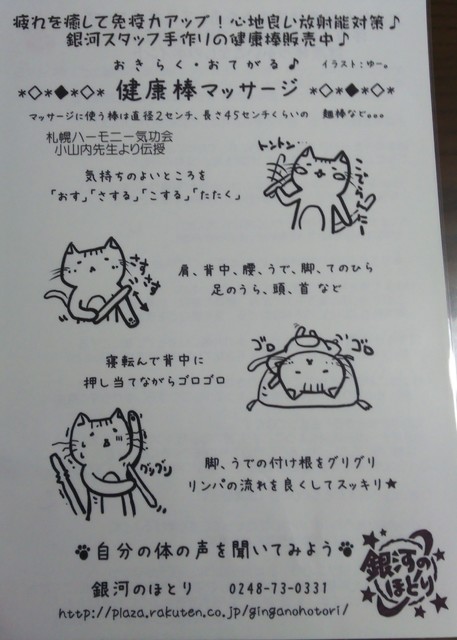 疲れを癒して免疫力アップ！心地良い放射能対策♪
銀河スタッフ手作りの健康棒販売中♪
おきらく・おてがる♪ イラスト:ゆー。
*◇*◆*◇* 健康棒マッサージ *◇*◆*◇*
マッサージに使う棒は直径2センチ、長さ45センチくらいの 麺棒など。。。
札幌ハーモニー気功会
小山内先生より伝授
トントン
気持ちのよいところを
「おす」「さする」「こする」「たたく」
さすさす
肩、背中、腰、うで、脚、てのひら
足のうら、頭、首 など
寝転んで背中に
押し当てながらゴロゴロ
ゴロ
ゴロ
グリグリ
脚、うでの付け根をグリグリ
リンパの流れを良くしてスッキリ★
自分の体の声を聞いてみよう
銀河のほとり
銀河のほとり 0248-73-0331
http://plaza.rakuten.co.jp/ginganohotori/